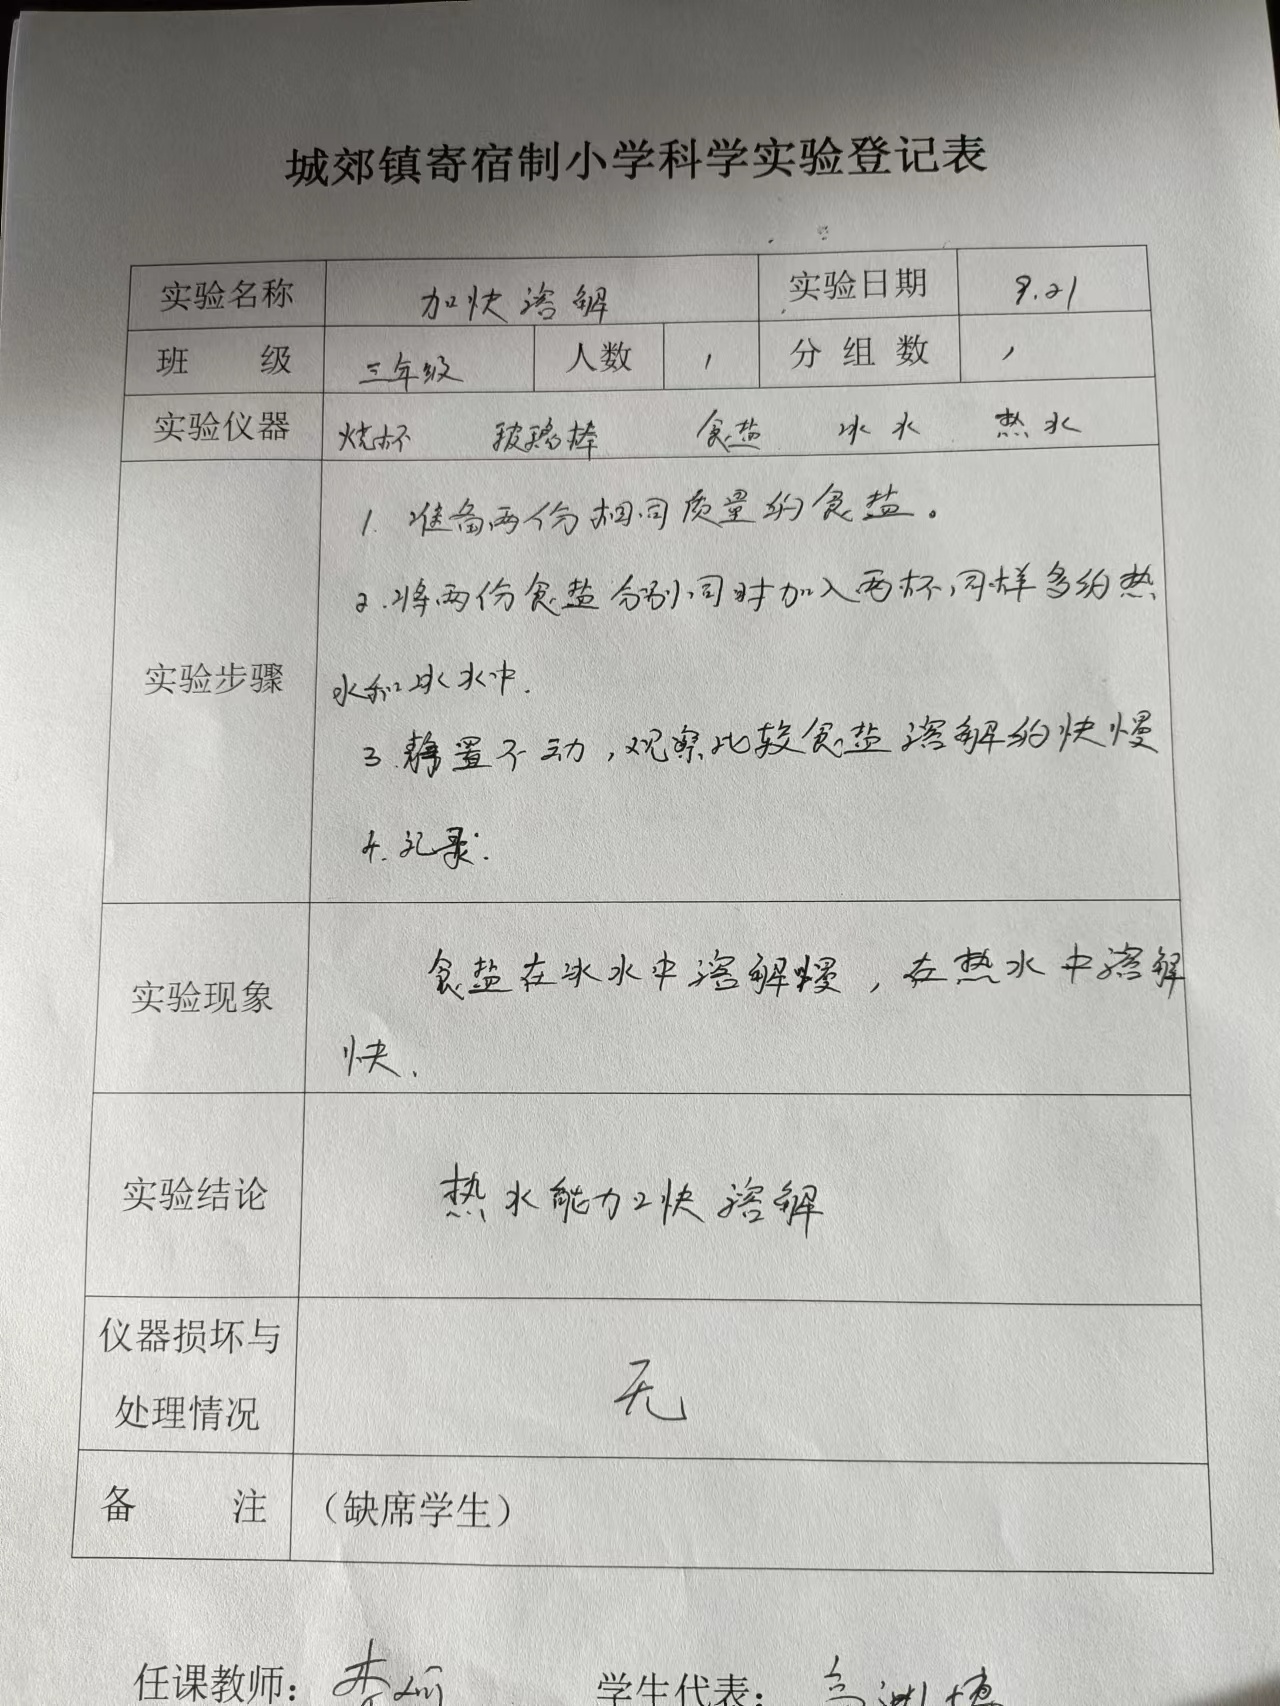 城郊镇寄宿制小学科学实验登记表
实验名称 加快溶解 实验日期 9.21
班 级 三年级 人数 1 分组数 1
实验仪器 烧杯 玻璃棒 食盐 冰水 热水
1. 准备两份相同质量的食盐。
2.将两份食盐分别同时加入两杯同样多的热
实验步骤 水和冰水中.
3.静置不动,观察比较食盐溶解的快慢
4.记录.
食盐在冰水中溶解慢,在热水中溶解
实验现象
快.
实验结论 热水能加快溶解
仪器损坏与
处理情况 无
备 注 (缺席学生)
任课教师: 学生代表: